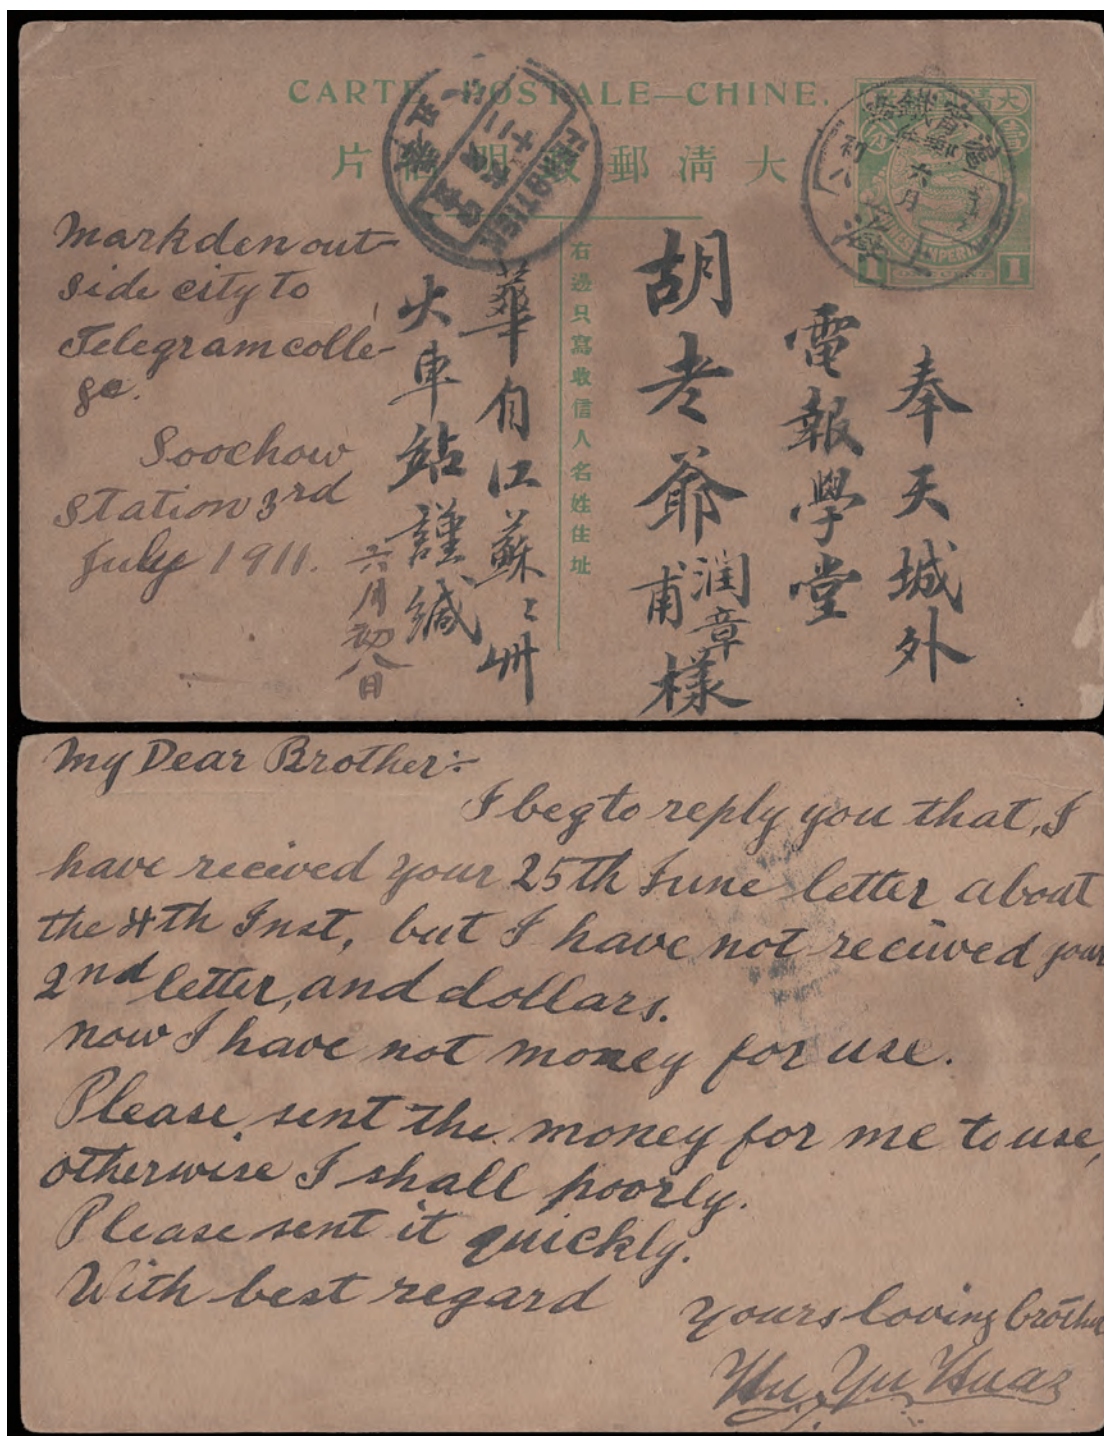 CARTE POSTALE—CHINE.
片信明 郵清大
大清
1 1
FENGTIEN
六月
初八
上海
奉天城外
電報學堂
胡老爺
潤章
甫
樣
右邊只寫收信人名姓住址
華自江蘇〻州
火車站謹緘
六月初八日
Markden out-
side city to
Telegram colle-
ge.
Soochow
Station 3rd
July 1911.
My Dear Brother:-
I beg to reply you that, I
have recived your 25th June letter about
the 4th Inst, but I have not recived your
2nd letter, and dollars.
now I have not money for use.
Please sent the money for me to use,
otherwise I shall poorly.
Please sent it quickly.
With best regard
yours loving brother
Hu Yu Huaz